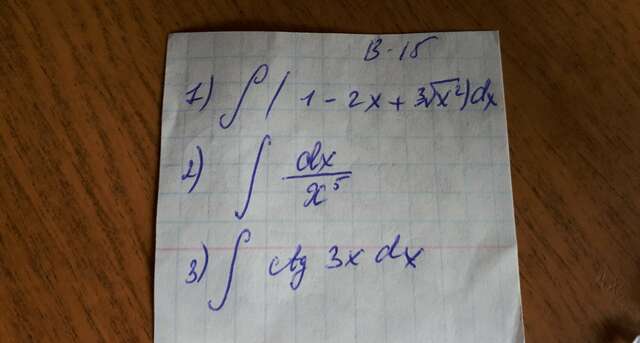 В-15
1) ∫(1-2x+3√x²)dx
2) ∫ dx/x⁵
3) ∫ ctg 3x dx